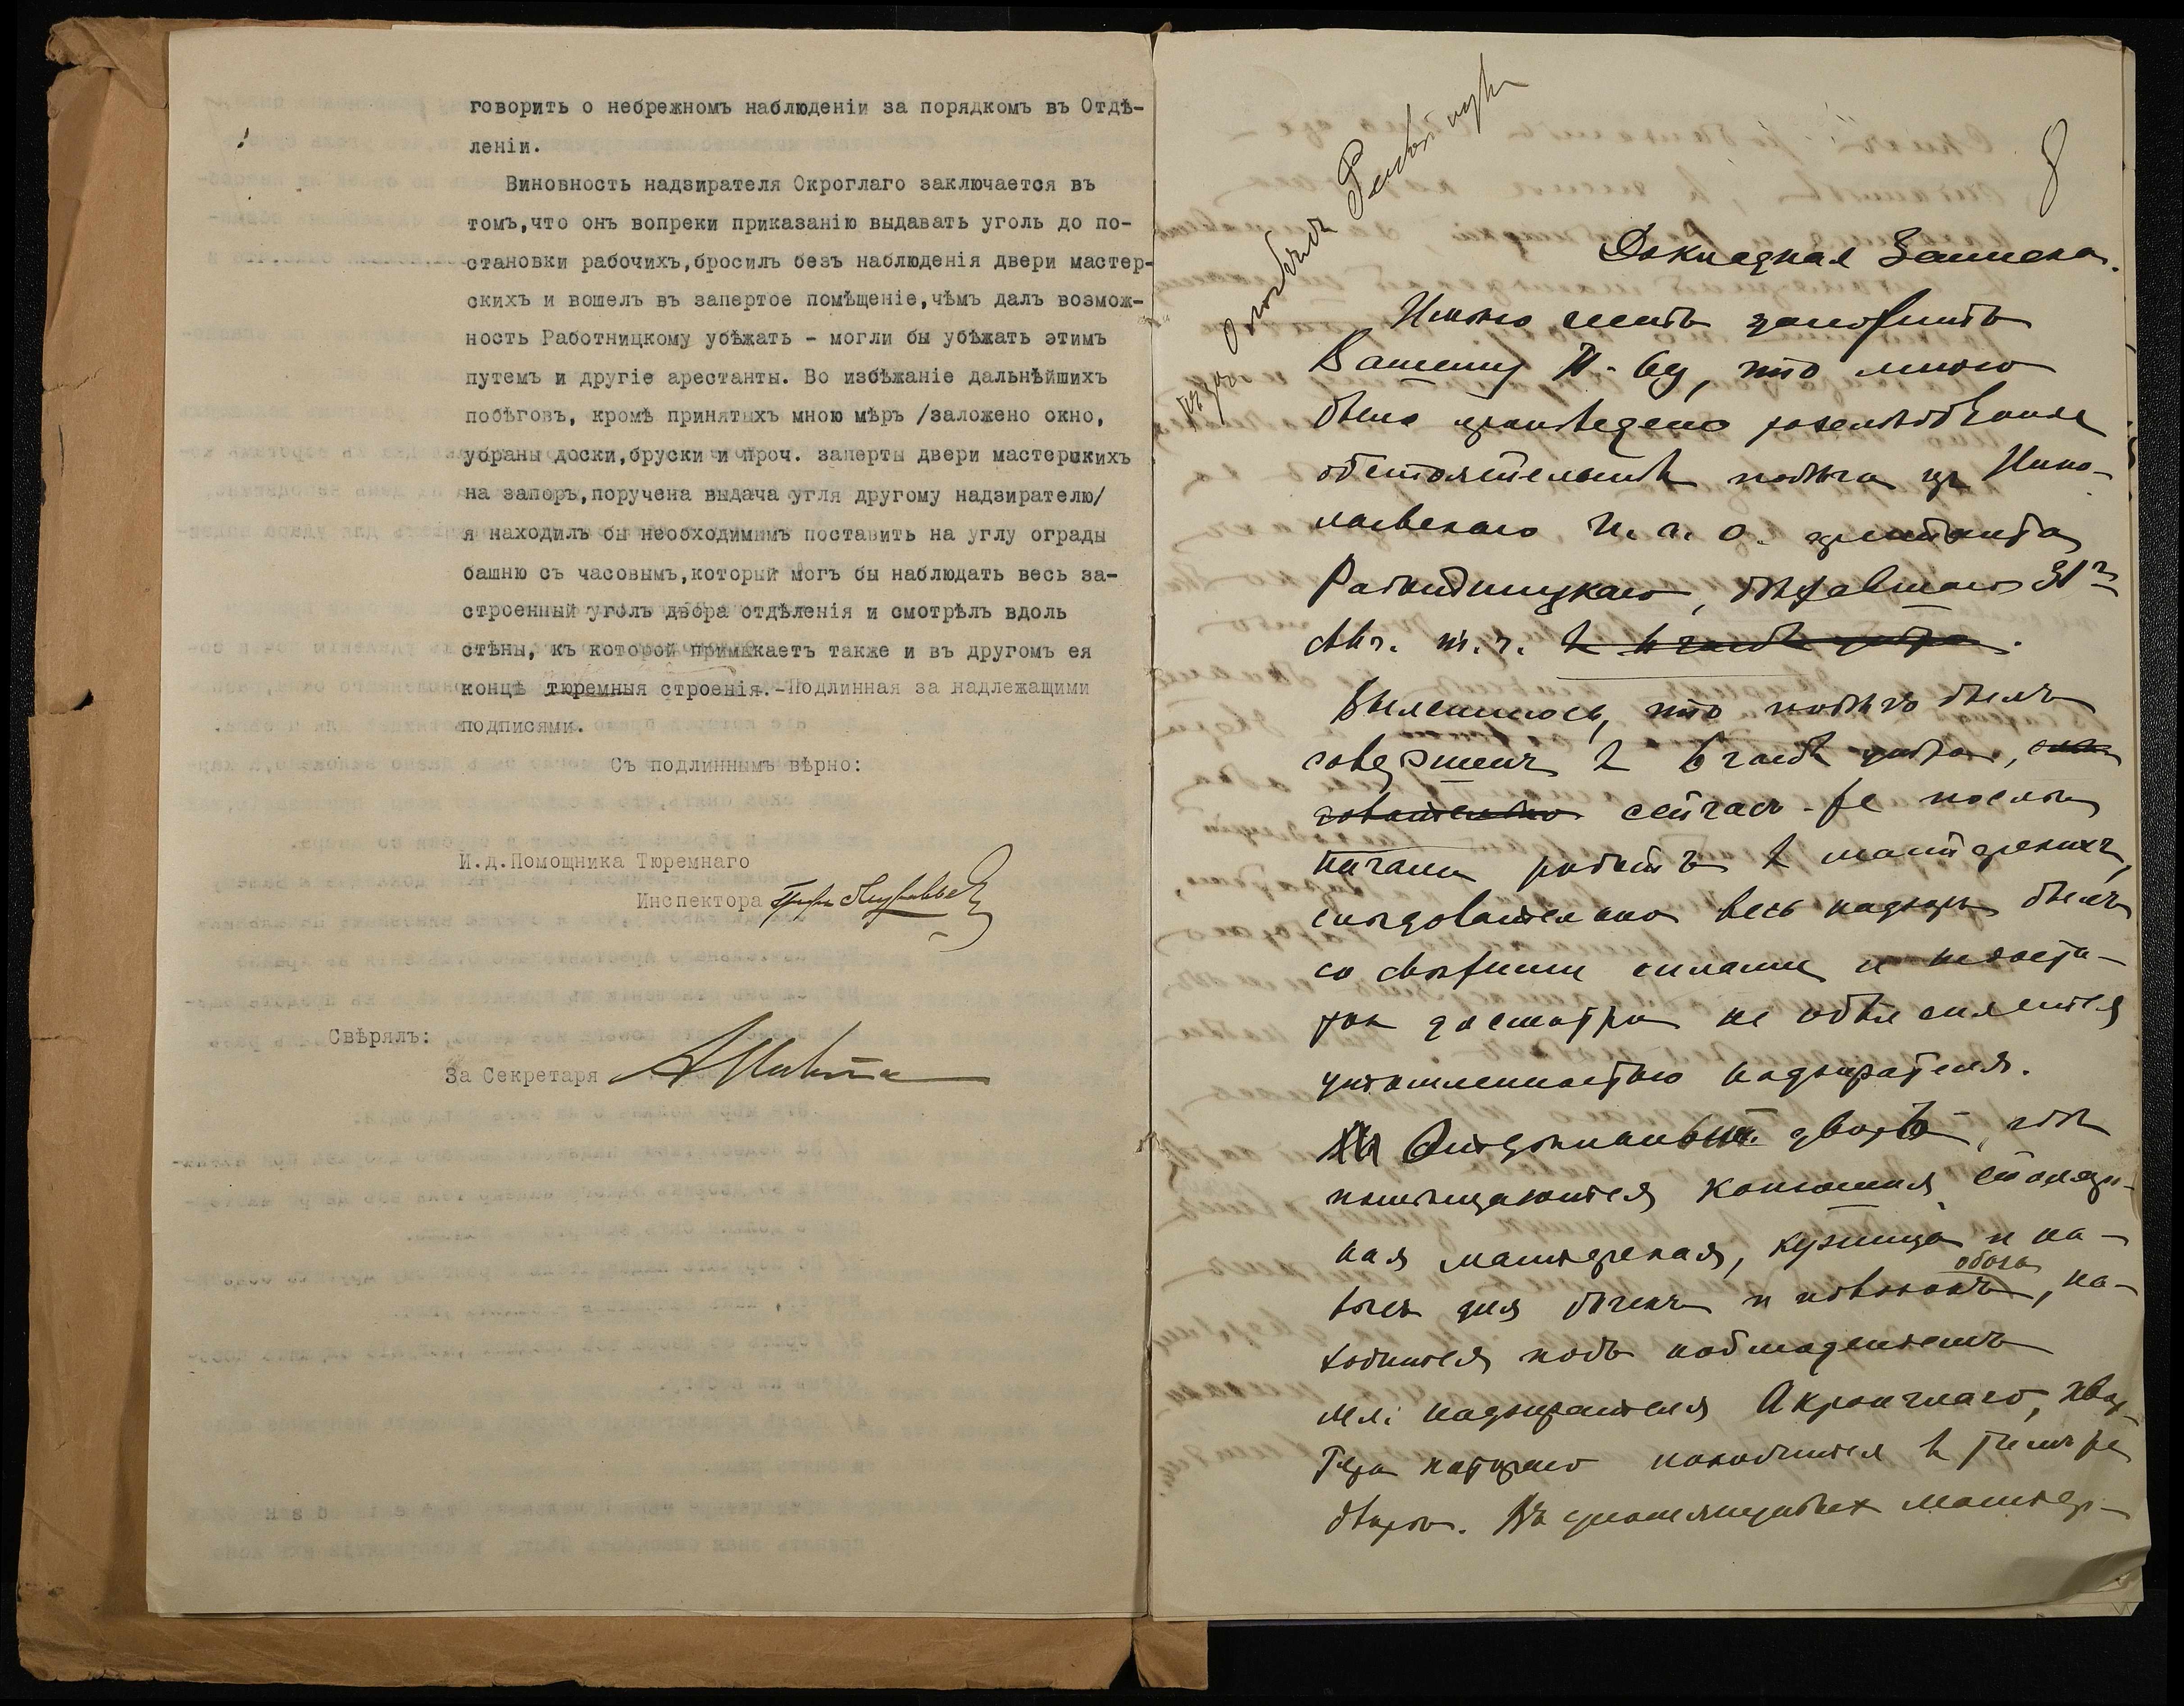 говорить о небрежномъ наблюденіи за порядкомъ въ Отдѣ-
леніи.
Виновность надзирателя Окроглаго заключается въ
томъ,что онъ вопреки приказанію выдавать уголь до по-
становки рабочихъ,бросилъ безъ наблюденія двери мастер-
скихъ и вошелъ въ запертое помѣщеніе,чѣмъ далъ возмож-
ность Работницкому убѣжать - могли бы убѣжать этимъ
путемъ и другіе арестанты. Во избѣжаніе дальнѣйшихъ
побѣговъ, кромѣ принятыхъ мною мѣръ /заложено окно,
убраны доски,бруски и проч. заперты двери мастерскихъ
на запоръ,поручена выдача угля другому надзирателю/
я находилъ бы необходимымъ поставить на углу ограды
башню съ часовымъ,который могъ бы наблюдать весь за-
строенный уголъ двора отдѣленія и смотрѣлъ вдоль
стѣны, къ которой примыкаетъ также и въ другомъ ея
концѣ тюремныя строенія.-Подлинная за надлежащими
подписями.
Съ подлиннымъ вѣрно:
И.д.Помощника Тюремнаго
Инспектора
Свѣрялъ:
За Секретаря
8
о побѣгѣ
Докладная Записка.
Имѣю честь доложить
Вашему П-ву, что мною
было произведено разслѣдованіе
обстоятельствъ побѣга изъ Нико-
лаевскаго И. А. О. арестанта
Работницкаго, бѣжавшаго 31го
авг. т. г. в 6 часовъ утра.
Выяснилось, что побѣгъ былъ
совершенъ в 6 часовъ утра,
сейчасъ-же послѣ
начала работъ в мастерскихъ,
слѣдовательно весь надзоръ былъ
со свѣжими силами и недоста-
токъ досмотра не объясняется
утомленностью надзирателя.
дворъ, гдѣ
помѣщаются конюшня, столяр-
ная мастерская, кузница и на-
вѣсъ для бочекъ и повозокъ обоза, на-
ходится подъ наблюденіемъ
мл. надзирателя Акроглаго, квар-
тира котораго находится в том же
дворѣ. мастер-